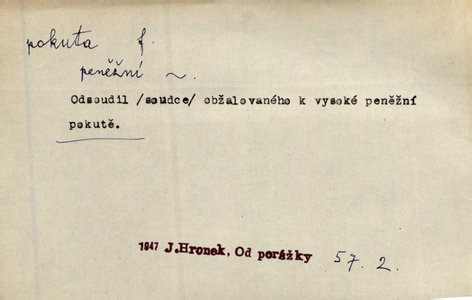 pokuta f.
peněžní ~.
Odsoudil /soudce/ obžalovaného k vysoké peněžní
pokutě.
1947 J.Hronek, Od porážky 57. 2.